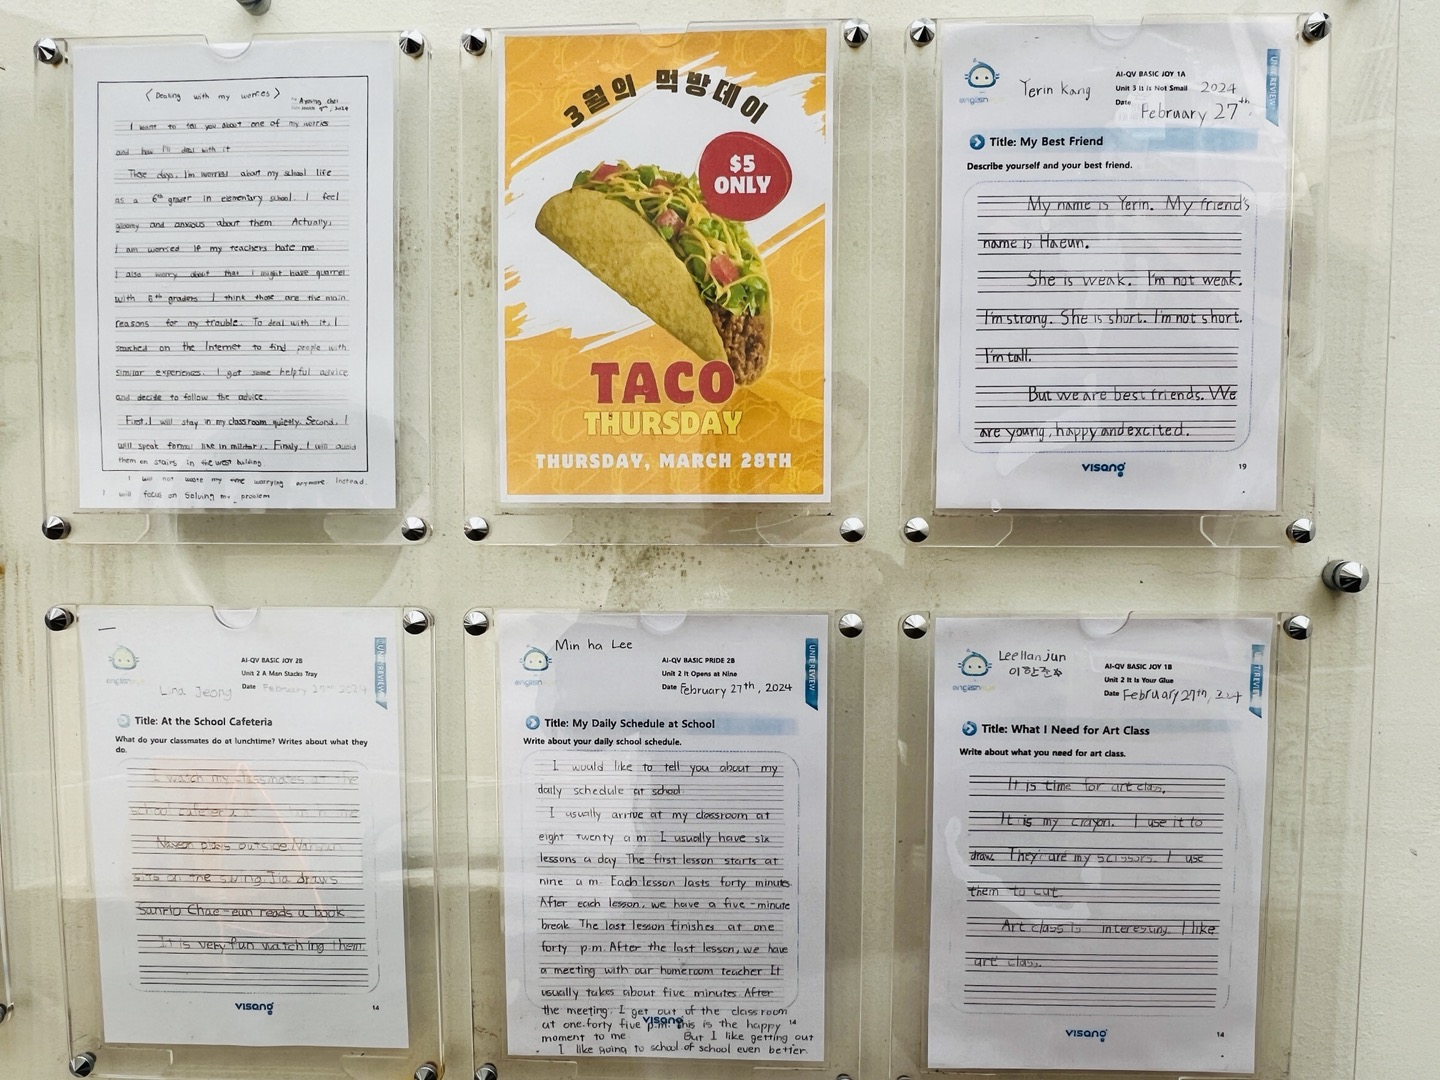 〈 Dealing with my worries 〉
Ayoung Choi
I want to tell you about one of my worries
and how I'll deal with it
These days, I'm worried about my school life
as a 6th grader in elementary school. I feel
gloomy and anxious about them Actually,
I am worried if my teachers hate me.
I also worry about that I might have quarrel
with 6th graders I think those are the main
reasons for my trouble. To deal with it, I
searched on the Internet to find people with
similar experiences. I got some helpful advice
and decide to follow the advice.
First, I will stay in my classroom quietly. Second, I
will speak formal like in military. Finally, I will avoid
them on stairs in the west building
I will not waste my time worrying anymore. Instead,
I will focus on Solving my problem
3월의 먹방데이
$5
ONLY
TACO
THURSDAY
THURSDAY, MARCH 28TH
Yerin Kang
AI-QV BASIC JOY 1A
Unit 3 It Is Not Small 2024
Date February 27th.
UNIT REVIEW
english
Title: My Best Friend
Describe yourself and your best friend.
My name is Yerin. My friend's
name is Haeun.
She is weak. I'm not weak.
I'm strong. She is short. I'm not short.
I'm tall.
But we are best friends. We
are young, happy and excited.
visang
19
english
Lina Jeong
AI-QV BASIC JOY 2B
Unit 2 A Man Stacks Tray
Date February 2024
UNIT REVIEW
Title: At the School Cafeteria
What do your classmates do at lunchtime? Writes about what they
do.
I watch my classmates at the
school cafeteria the
Naeun plays outside.
sits on the swing. Jia draws
Sanrio Chae-eun reads a book
It is very fun watching them
visang
14
Min ha Lee
english
AI-QV BASIC PRIDE 2B
Unit 2 It Opens at Nine
Date February 27th, 2024
UNIT REVIEW
Title: My Daily Schedule at School
Write about your daily school schedule.
I would like to tell you about my
daily schedule at school
I usually arrive at my classroom at
eight twenty a.m I usually have six
lessons a day The first lesson starts at
nine a.m. Each lesson lasts forty minutes.
After each lesson, we have a five-minute
break. The last lesson finishes at one
forty p.m. After the last lesson, we have
a meeting with our homeroom teacher It
usually takes about five minutes. After
the meeting, I get out of the classroom
at one-forty five p.m. This is the happy
moment to me But I like getting out
I like going to school of school even better.
visang
14
LeeHanjun
이한준
english
AI-QV BASIC JOY 1B
Unit 2 It Is Your Glue
Date February 27th,
UNIT REVIEW
Title: What I Need for Art Class
Write about what you need for art class.
It is time for art class.
It is my crayon. I use it to
draw. They're my scissors. I use
them to cut.
Art class is interesting. I like
art class.
visang
14